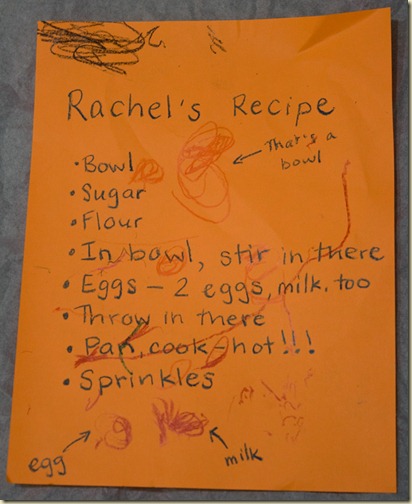 Rachel's Recipe
That's a
bowl
• Bowl
• Sugar
• Flour
• In bowl, stir in there
• Eggs – 2 eggs, milk, too
• Throw in there
• Pan, cook – hot!!!
• Sprinkles
egg
milk